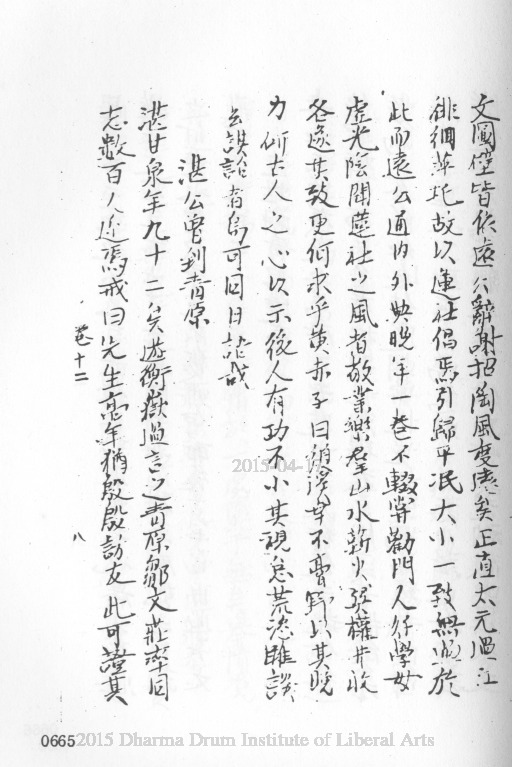 文園僅皆依遠公辭謝招陶風度遠矣正直太元過江
徘徊萍托故以蓮社倡焉引歸平泯大小一致無
於此而遠公通内外典晚年一卷不輟常勸門人好學毋
虚光陰聞蓮社之風者敬業樂群山水薪火
各遂其致更何求乎黄赤子曰
不
以其晚
力
古人之心以示後人有功不小其視怠荒
雌談
者烏可同日語哉
湛公曾到青原
湛甘泉年九十二矣遊衡嶽過
之青原鄒文莊率同
志數百人迎焉戒曰先生
年猶殷殷訪友此可證其
卷十二
八
2015-04-1
0665
2015 Dharma Drum Institute of Liberal Arts